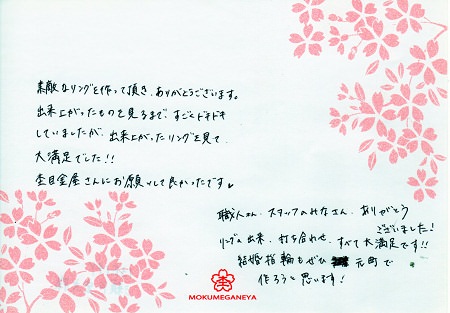 素敵なリングを作って頂き、ありがとうございます。
出来上がったものを見るまで、すごくドキドキ
していましたが、出来上がったリングを見て、
大満足でした!!
杢目金屋さんにお願いして良かったです♥
職人さん、スタッフのみなさん、ありがとう
ございました!
リングの出来、打ち合わせ、すべて大満足です!!
結婚指輪もぜひ 元町で
作ろうと思います!
MOKUMEGANEYA